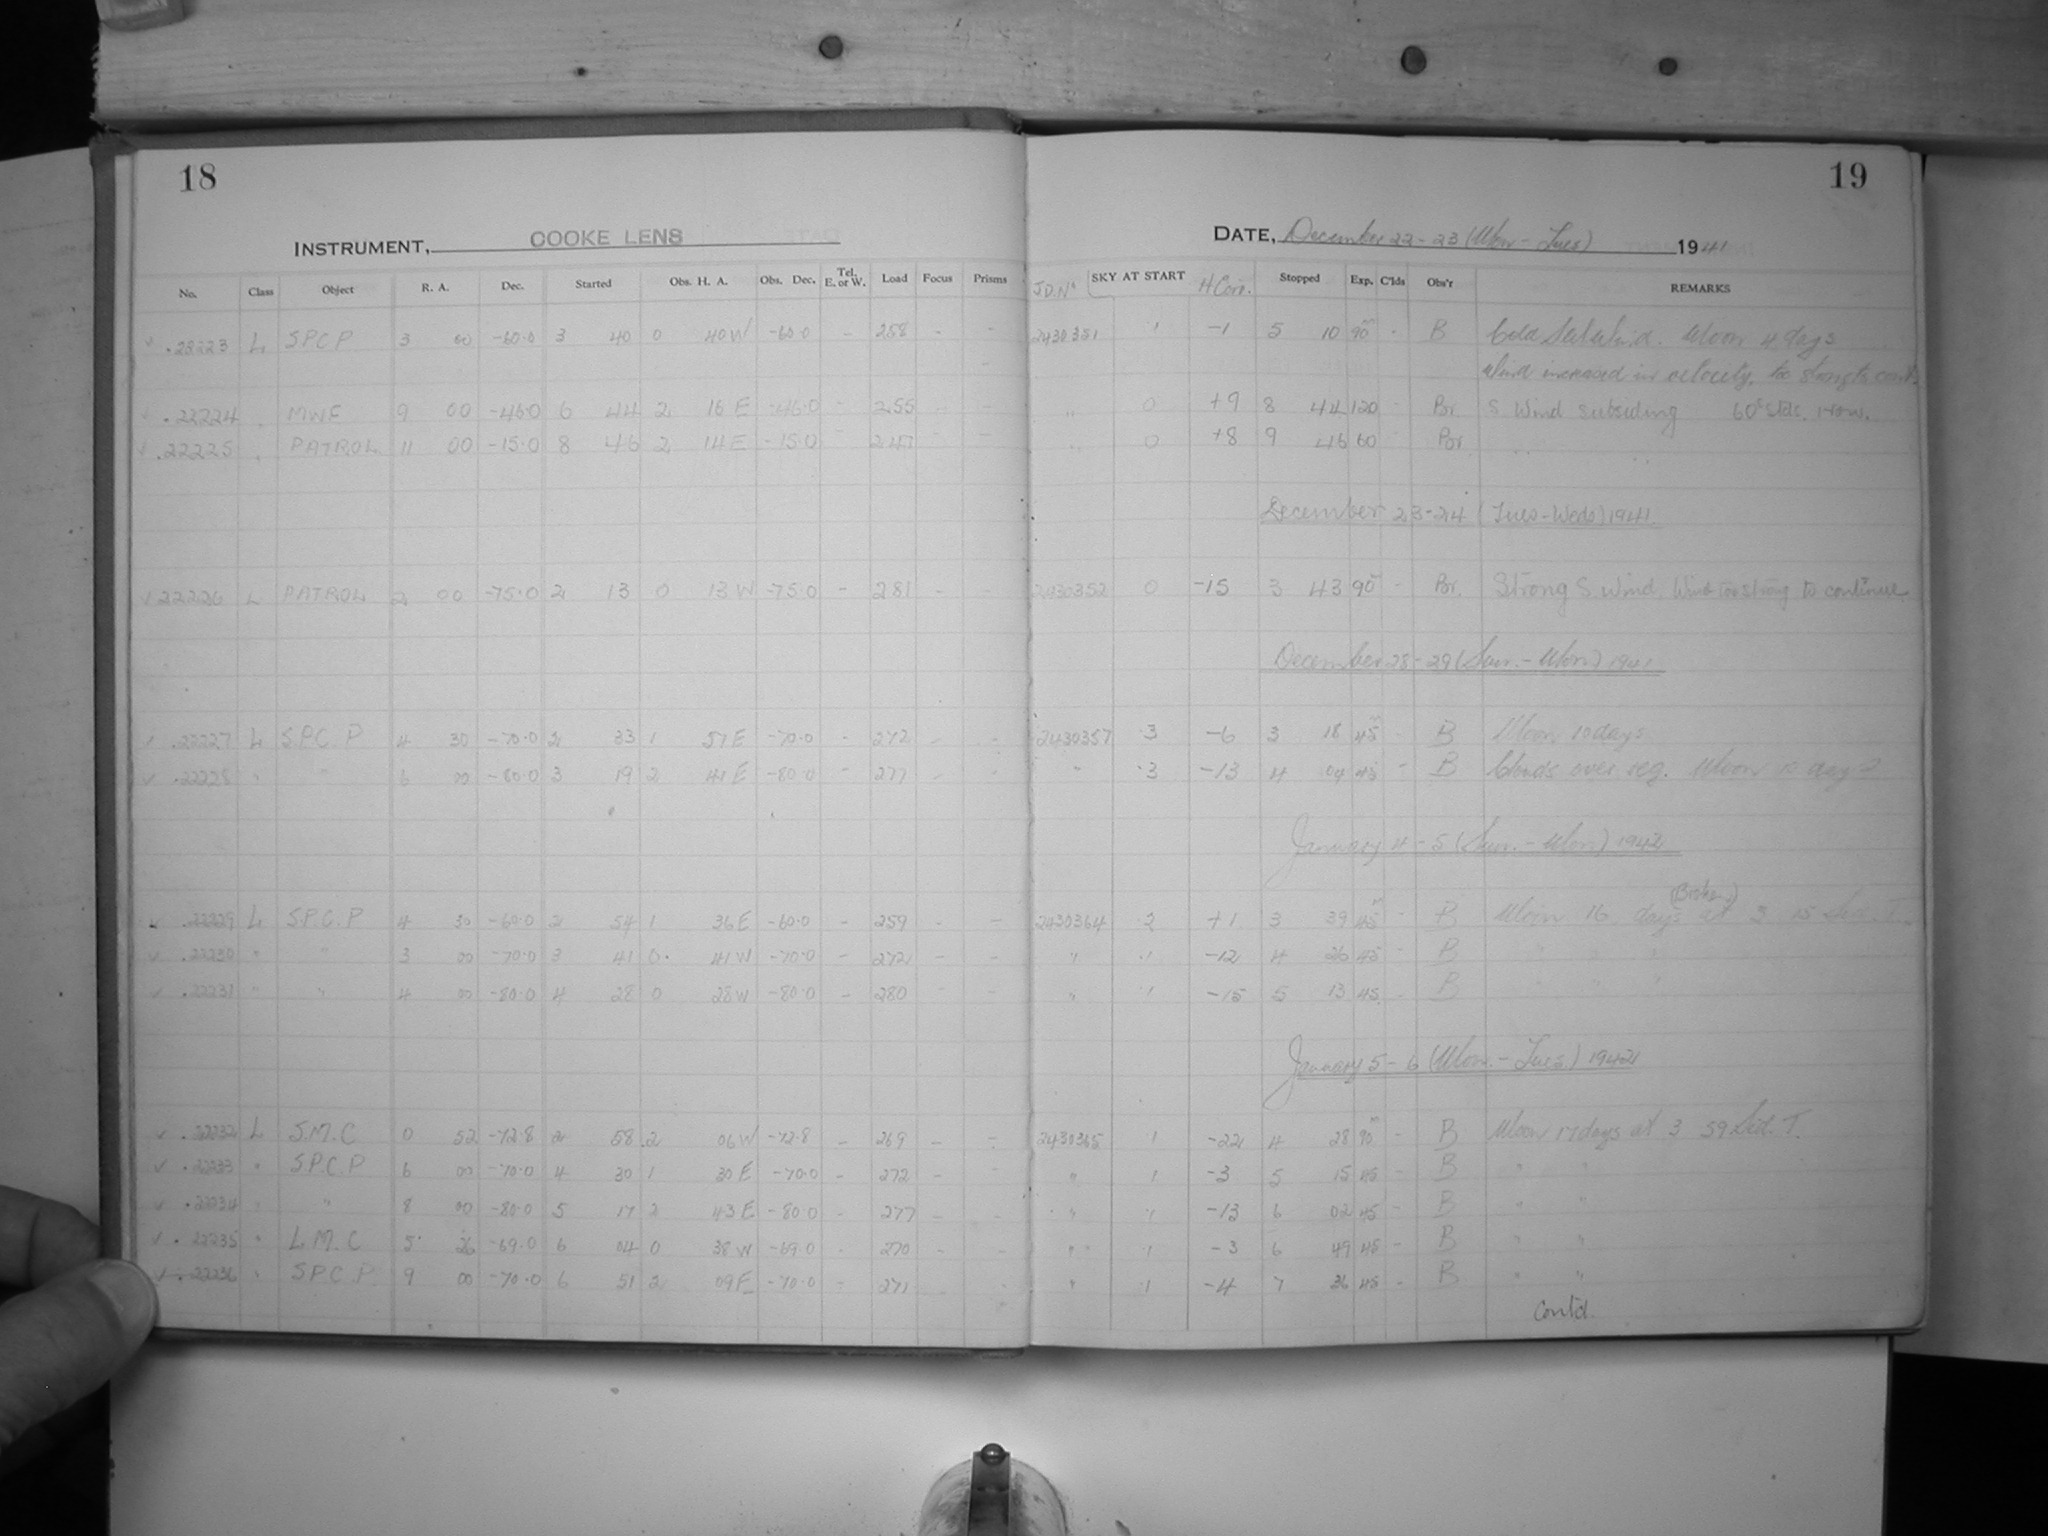 18
INSTRUMENT, COOKE LENS
No. Class Object R. A. Dec. Started Obs. H. A. Obs. Dec. Tel. E. or W. Load Focus Prisms
.22223 L SPCP 3 00 -60.0 3 40 0 40W -60.0 - 258 - -
.22224 " MWF 9 00 -46.0 6 44 2 16E -46.0 - 255 - -
.22225 " PATROL 11 00 -15.0 8 46 2 14E -15.0 - 247 - -
22226 L PATROL 2 00 -75.0 2 13 0 13W -75.0 - 281 - -
.22227 L S.P.C.P 4 30 -70.0 2 33 1 57E -70.0 - 272 - -
.22228 " " 6 00 -80.0 3 19 2 41E -80.0 - 277 - -
.22229 L S.P.C.P 4 30 -60.0 2 54 1 36E -60.0 - 259 - -
.22230 " " 3 00 -70.0 3 41 0 41W -70.0 - 272 - -
.22231 " " 4 00 -80.0 4 28 0 28W -80.0 - 280 - -
.22232 L S.M.C 0 52 -72.8 2 58 2 06W -72.8 - 269 - -
.22233 " S.P.C.P 6 00 -70.0 4 30 1 30E -70.0 - 272 - -
.22234 " " 8 00 -80.0 5 17 2 43E -80.0 - 277 - -
.22235 " L.M.C 5 26 -69.0 6 04 0 38W -69.0 - 270 - -
.22236 " S.P.C.P. 9 00 -70.0 6 51 2 09E -70.0 - 271 - -
19
DATE, December 22-23 (Mon - Tues) 1941
J.D. No SKY AT START H Corr. Stopped Exp. C'lds Obs'r REMARKS
2430351 .1 -1 5 10 90m - B Moon 4 days
Wind increased in velocity, too strong to cont.
" 0 +9 8 44 120 - Br. S Wind subsiding 60° Slds.
" 0 +8 9 46 60 Br. " "
December 23-24 (Tues-Weds) 1941
2430352 0 -15 3 43 90 - Br. Strong S. wind. Wind too strong to continue
December 28-29 (Sun. - Mon.) 1941
2430357 .3 -6 3 18 45m - B Moon 10 days
" .3 -13 4 04 45 - B Clouds over reg. Moon 10 days
January 4-5 (Sun. - Mon.) 1942
2430364 2 +1 3 39 45m - B Moon 16 days at 3 15 Sid. T.
" .1 -12 4 26 45 - B " " "
" .1 -15 5 13 45 - B " " "
January 5-6 (Mon. - Tues.) 1942
2430365 1 -22 4 28 90m - B Moon 17 days at 3 59 Sid. T.
" 1 -3 5 15 45 - B " "
" .1 -13 6 02 45 - B " "
" .1 -3 6 49 45 - B " "
" .1 -4 7 36 45 - B " "
Cont'd.